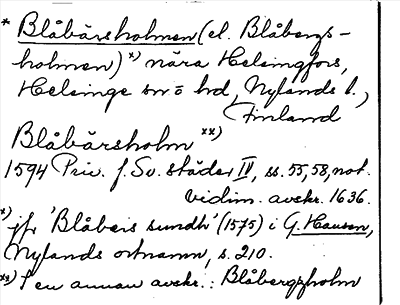 * Blåbärsholmen (el. Blåbergs-
holmen) x) nära Helsingfors,
Helsinge sn o hd, Nylands l.,
Finland
Blåbärsholm xx)
1594 Priv. f. Sv. städer IV, ss. 55, 58, not.
vidim. avskr. 1636.
x) jfr 'Blåbers sundh' (1575) i G. Hausen,
Nylands ortnamn, s. 210.
xx) I en annan avskr.: Blåbergzholm